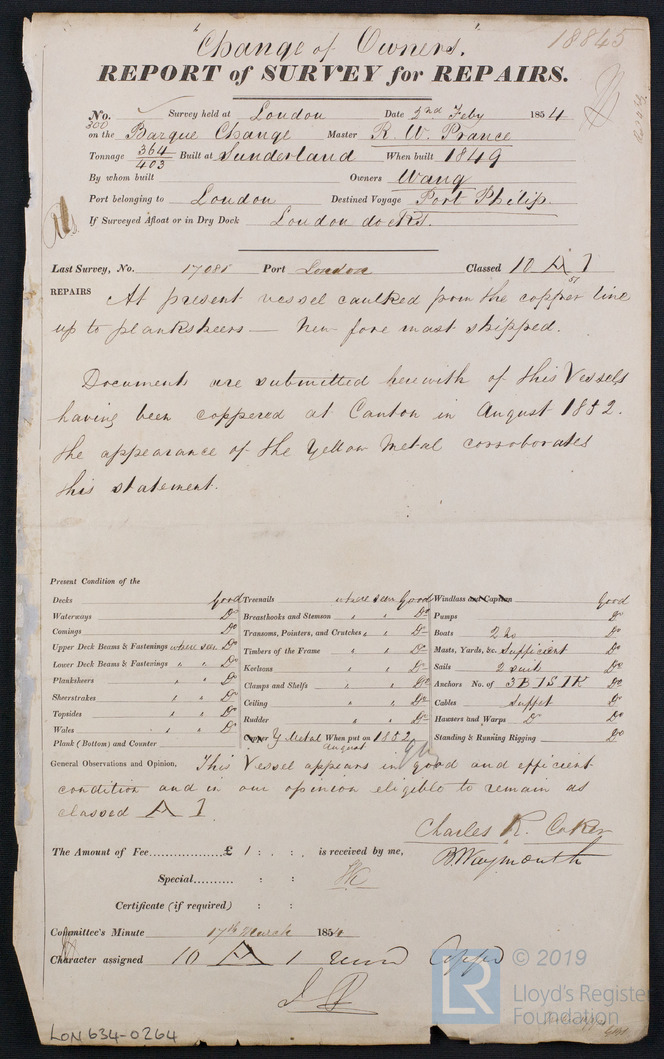 "Change of Owners". 18845
REPORT of SURVEY for REPAIRS.
No. Survey held at London Date 2nd Feby 1854
300
on the Barque Change Master R. W. Prance
Tonnage 364/403 Built at Sunderland When built 1849
By whom built Owners Wang
Port belonging to London Destined Voyage Port Philip
If Surveyed Afloat or in Dry Dock London docks.
Last Survey, No. 17081 Port London Classed 10 A 1
51
REPAIRS At present vessel caulked from the copper line
up to planksheers — New fore mast shipped.
Documents are submitted herewith of this Vessels
having been coppered at Canton in August 1852.
the appearance of the Yellow Metal corroborates
this statement.
Present Condition of the
Decks Good Treenails where seen Good Windlass and Capstan Good
Waterways Do Breasthooks and Stemson " " Do Pumps Do
Comings Do Transoms, Pointers, and Crutches " " Do Boats 2 no Do
Upper Deck Beams & Fastenings where seen Do Timbers of the Frame " " Do Masts, Yards, &c. Sufficient Do
Lower Deck Beams & Fastenings " " Do Keelsons " " Do Sails 2 suits Do
Planksheers " " Do Clamps and Shelfs " " Do Anchors No. of 3B 1S 1K Do
Sheerstrakes " " Do Ceiling " " Do Cables Suffict Do
Topsides " " Do Rudder " " Do Hawsers and Warps Do Do
Wales " " Do Copper Y Metal When put on 1852 Standing & Running Rigging Do
Plank (Bottom) and Counter in August
General Observations and Opinion, This Vessel appears in good and efficient
condition and in our opinion eligible to remain as
classed A 1.
Charles R. Coker
The Amount of Fee £ 1 : . : . is received by me, B Waymouth
Special : :
Certificate (if required) : :
Committee's Minute 17th March 1854
Character assigned 10 A 1
LON634-0264
LR © 2019
Lloyd's Register
Foundation